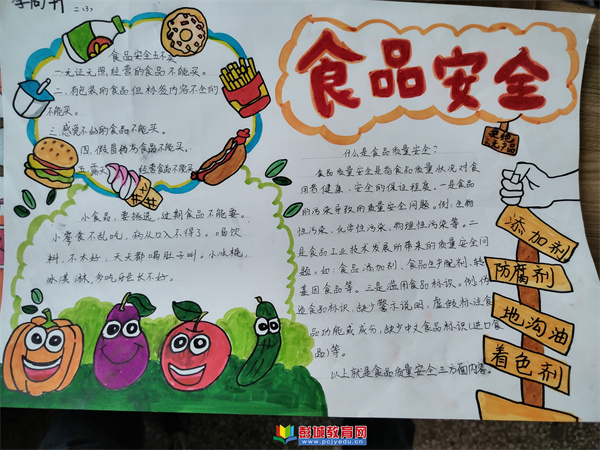 二（3）
食品安全
食品安全五不买
一.无证无照经营的食品不能买。
二.有包装的食品但标签内容不全的
不能买。
三.感觉不好的食品不能买。
四.假冒伪劣食品不能买。
五.露天 经营食品不能买
小食品，要挑选，过期食品不能要。
小零食不乱吃，病从口入不得了。喝饮
料，不太好，天天都喝肚子叫。小冰棍，
冰淇淋，多吃牙色长不好。
什么是食品质量安全？
食品质量安全是指食品质量状况对食
用者健康、安全的保证程度。一是食品
的污染导致的质量安全问题。例：生物
性污染、化学性污染、物理性污染等。二
是食品工业技术发展所带来的质量安全问
题。如：食品添加剂、食品生产配剂、转
基因食品等。三是滥用食品标识。例：伪
造食品标识、缺少警示说明、虚假标注食
品功能或成分、缺少中文食品标识（进口食
品）等。
以上就是食品质量安全三方面内容。
拒绝
三无食品
添加剂
防腐剂
地沟油
着色剂
彭城教育网
www.pcjyedu.cn